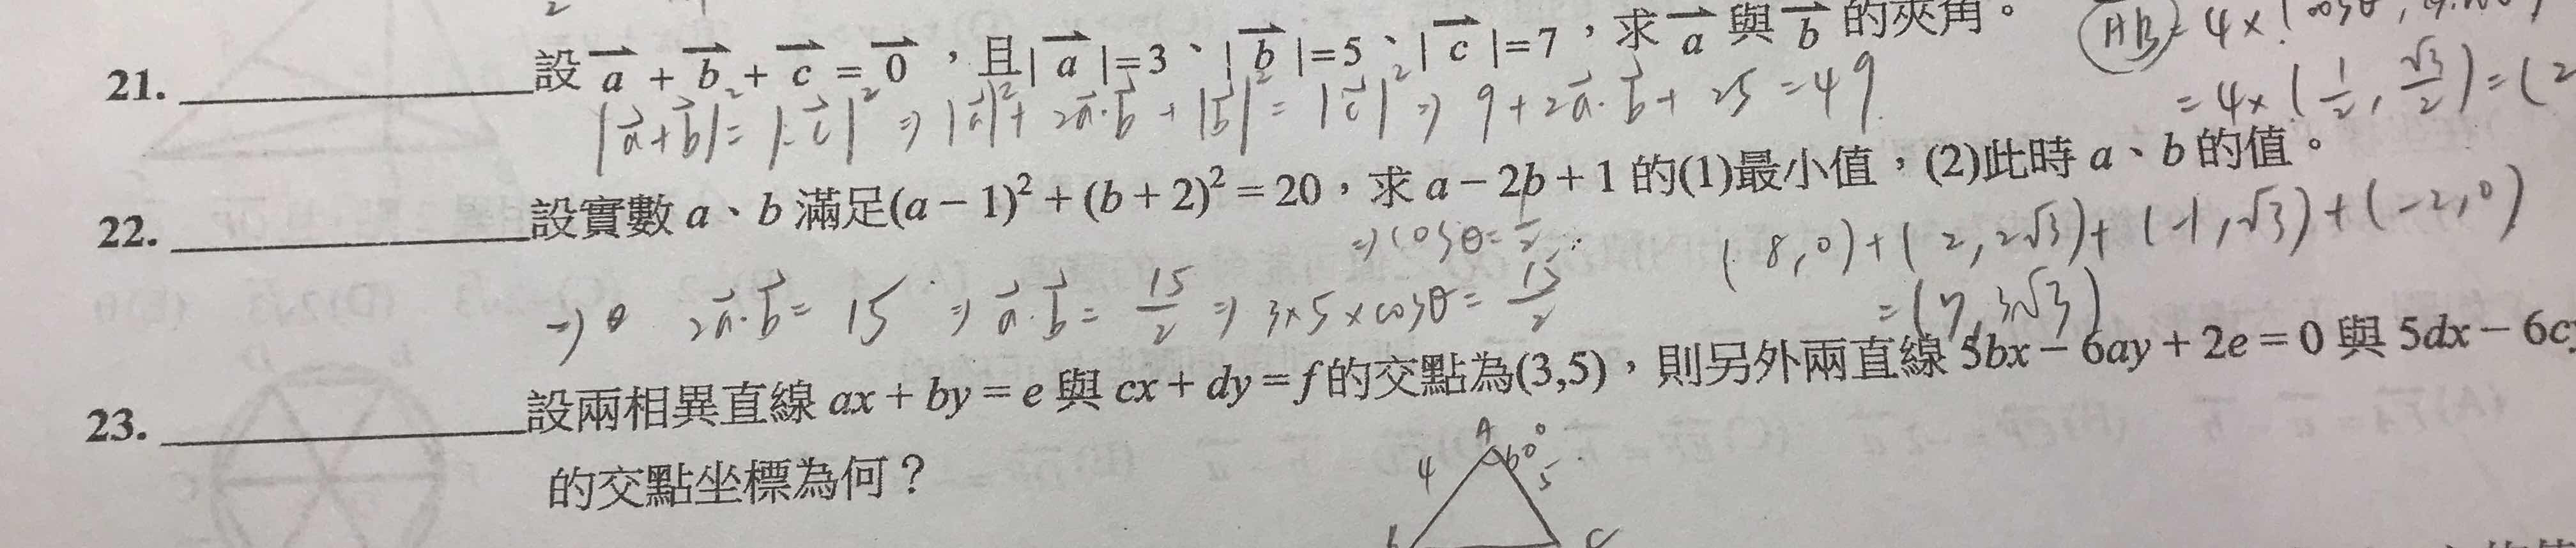 21. 設 a + b + c = 0 ，且| a |=3、| b |=5、| c |=7，求 a 與 b 的夾角。
|a+b|²=|-c|² ⇒ |a|²+2a·b+|b|²=|c|² ⇒ 9+2a·b+25=49
AB = 4×(cosθ,
=4×(1/2, √3/2)=(2
22. 設實數 a、b 滿足(a－1)²＋(b＋2)²＝20，求 a－2b＋1 的(1)最小值，(2)此時 a、b 的值。
⇒ cosθ=1/2
(8,0)+(2,2√3)+(-1,√3)+(-2,0)
=(7,3√3)
⇒ θ 2a·b=15 ⇒ a·b=15/2 ⇒ 3×5×cosθ=15/2
23. 設兩相異直線 ax＋by＝e 與 cx＋dy＝f 的交點為(3,5)，則另外兩直線 5bx－6ay＋2e＝0 與 5dx－6cy
的交點坐標為何？
A
4 60° 5
C